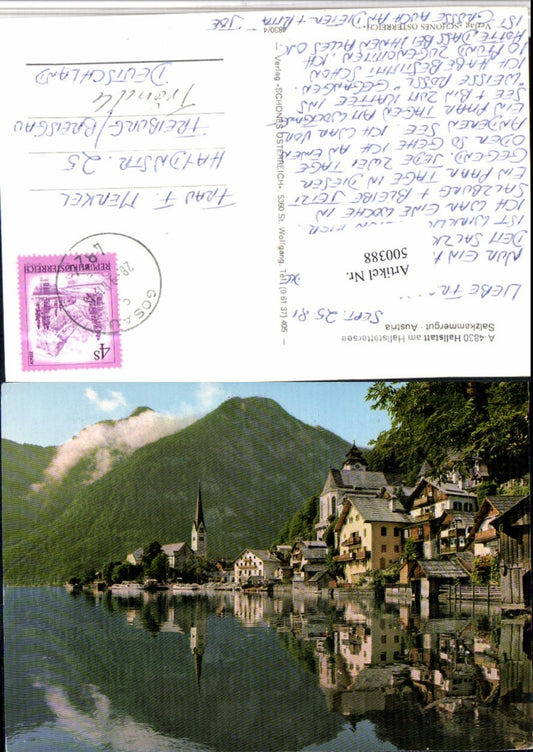 A-4830 Hallstatt am Hallstättersee
Salzkammergut · Austria
SEPT. 25 81
LIEBE
NUR EIN
DEM SALZK
IST WIRKLICH
ICH WAR EINE WOCHE IN
SALZBURG + BLEIBE JETZT
EIN PAAR TAGE IN DIESER
GEGEND. JEDE ZWEI TAGE
ODER SO GEHE ICH AN EINEN
ANDEREN SEE. ICH WAR VOR
EIN PAAR TAGEN AM
SEE + BIN ZUM KAFFEE INS
"WEISSE ROSSL" GEGANGEN.
ICH HABE BESTIMMT SCHON
10 PFUND ZUGENOMMEN. ICH
HOFFE DASS BEI IHNEN ALLES OK
IST GRÜSSE AUCH AN DIETER + RITA
JOE
Artikel Nr.
500388
Verlag »SCHÖNES ÖSTERREICH« · 5360 St. Wolfgang · Tel. (0 61 37) 405
4830/4
Verlag »SCHÖNES ÖSTERREICH«
FRAU F. MERKEL
HAYDNSTR. 25
FREIBURG/BREISGAU
DEUTSCHLAND
REPUBLIK ÖSTERREICH
4S
GOSAU